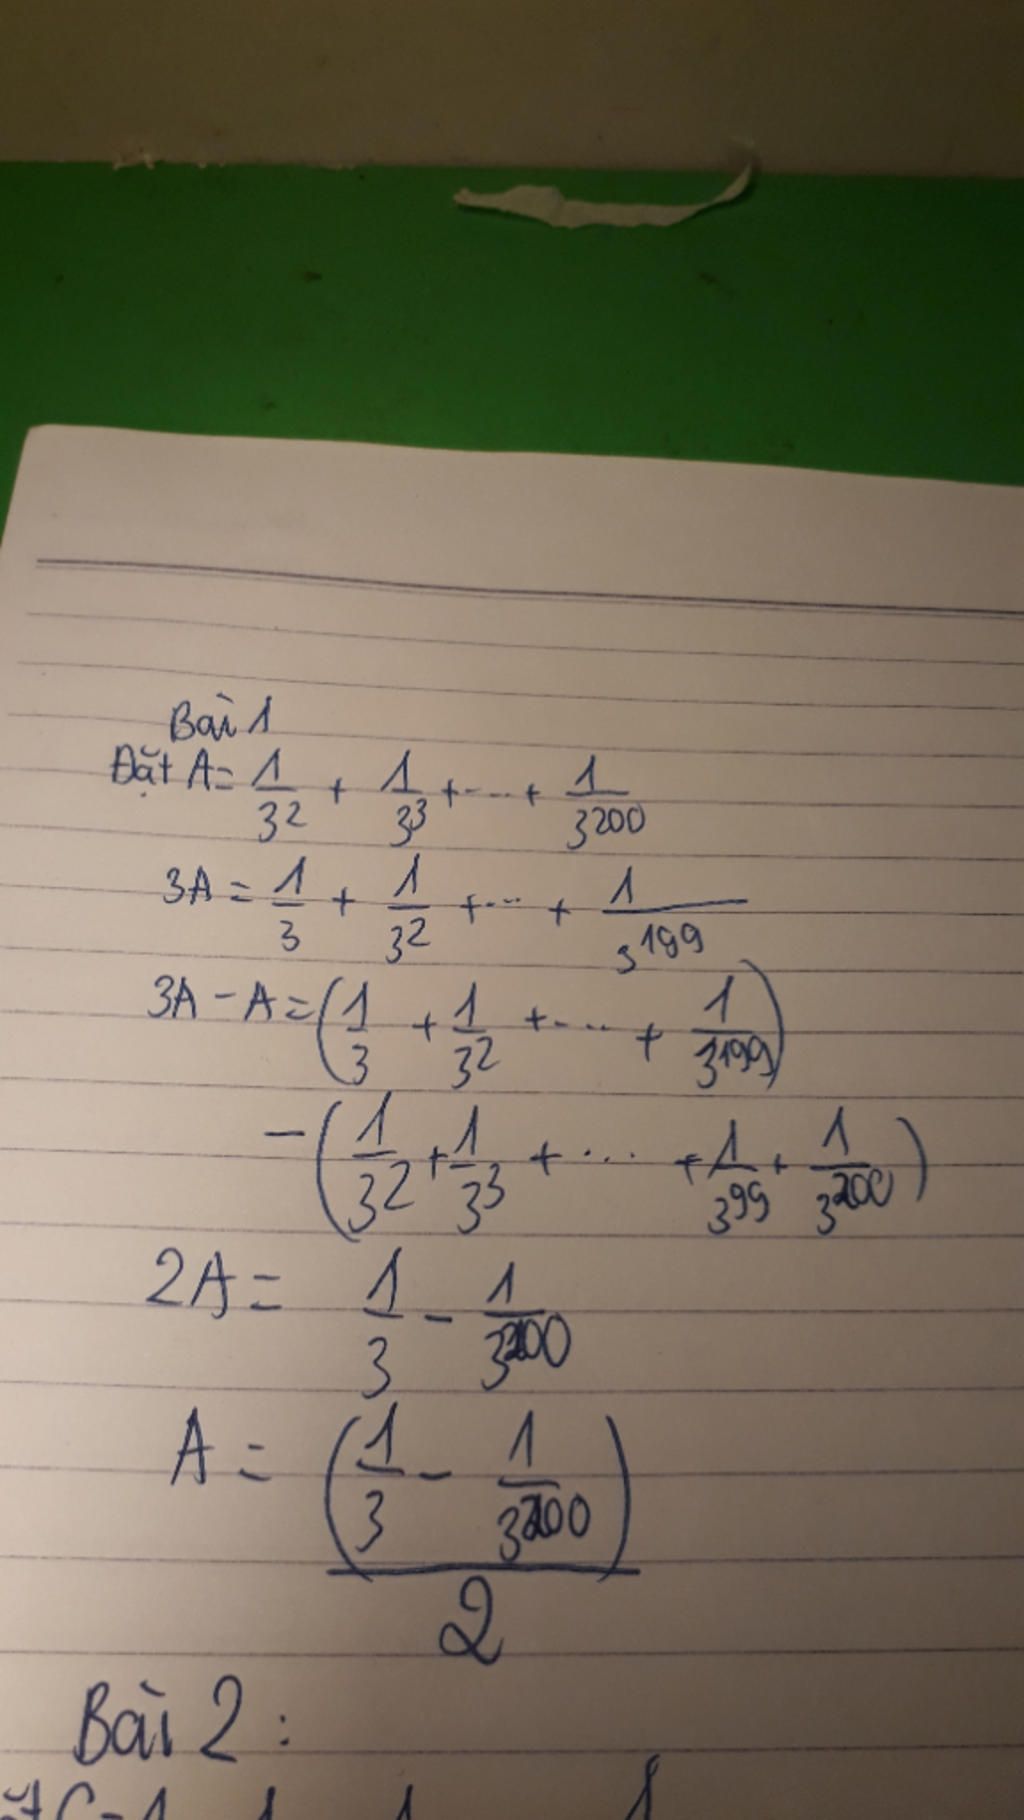 Bài 1
Đặt A = 1/3² + 1/3³ + ... + 1/3²⁰⁰
3A = 1/3 + 1/3² + ... + 1/3¹⁹⁹
3A - A = (1/3 + 1/3² + ... + 1/3¹⁹⁹)
- (1/3² + 1/3³ + ... + 1/3⁹⁹ + 1/3²⁰⁰)
2A = 1/3 - 1/3²⁰⁰
A = (1/3 - 1/3²⁰⁰)/2
Bài 2: